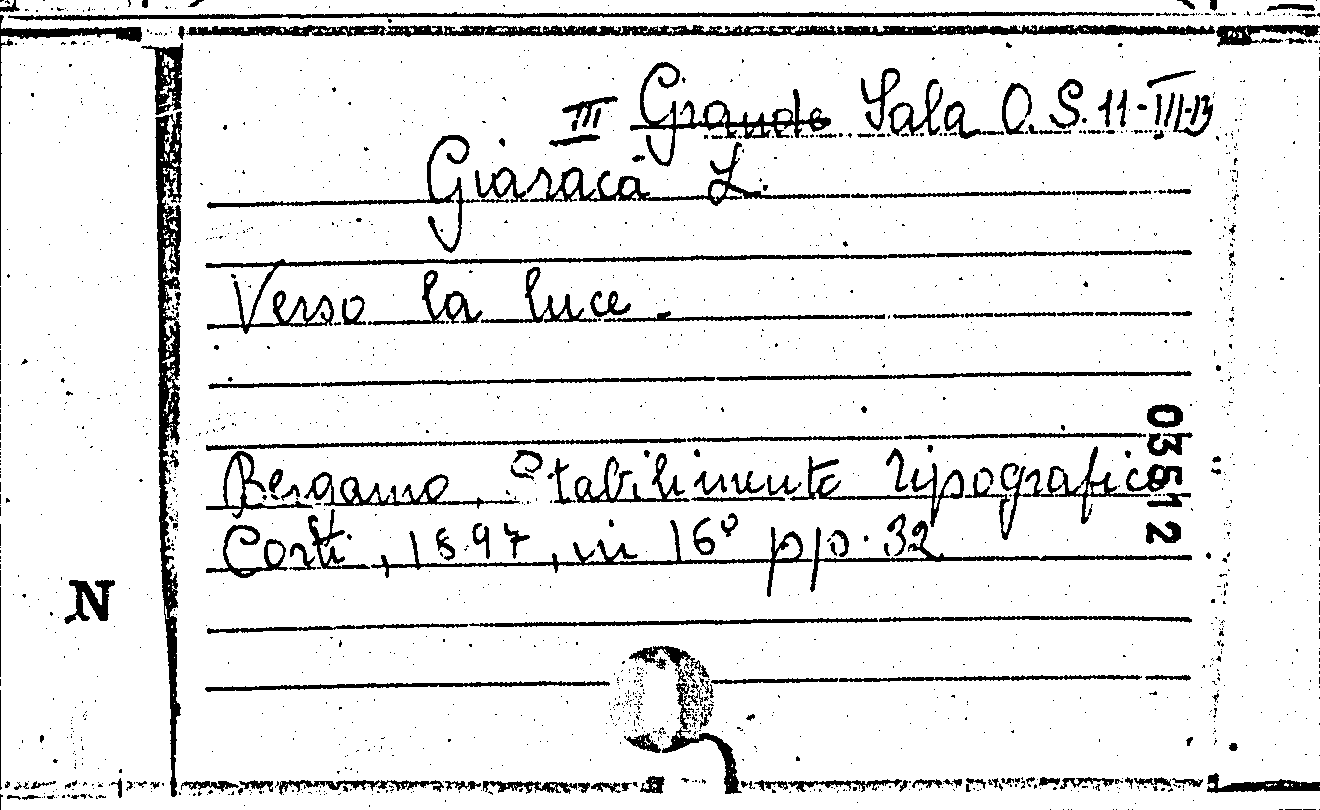 III Grande Sala O.S. 11-III-13
Giaracà L.
Verso la luce.
Bergamo, Stabilimento tipografico
Corti, 1897, in 16° pp. 32
03512
N